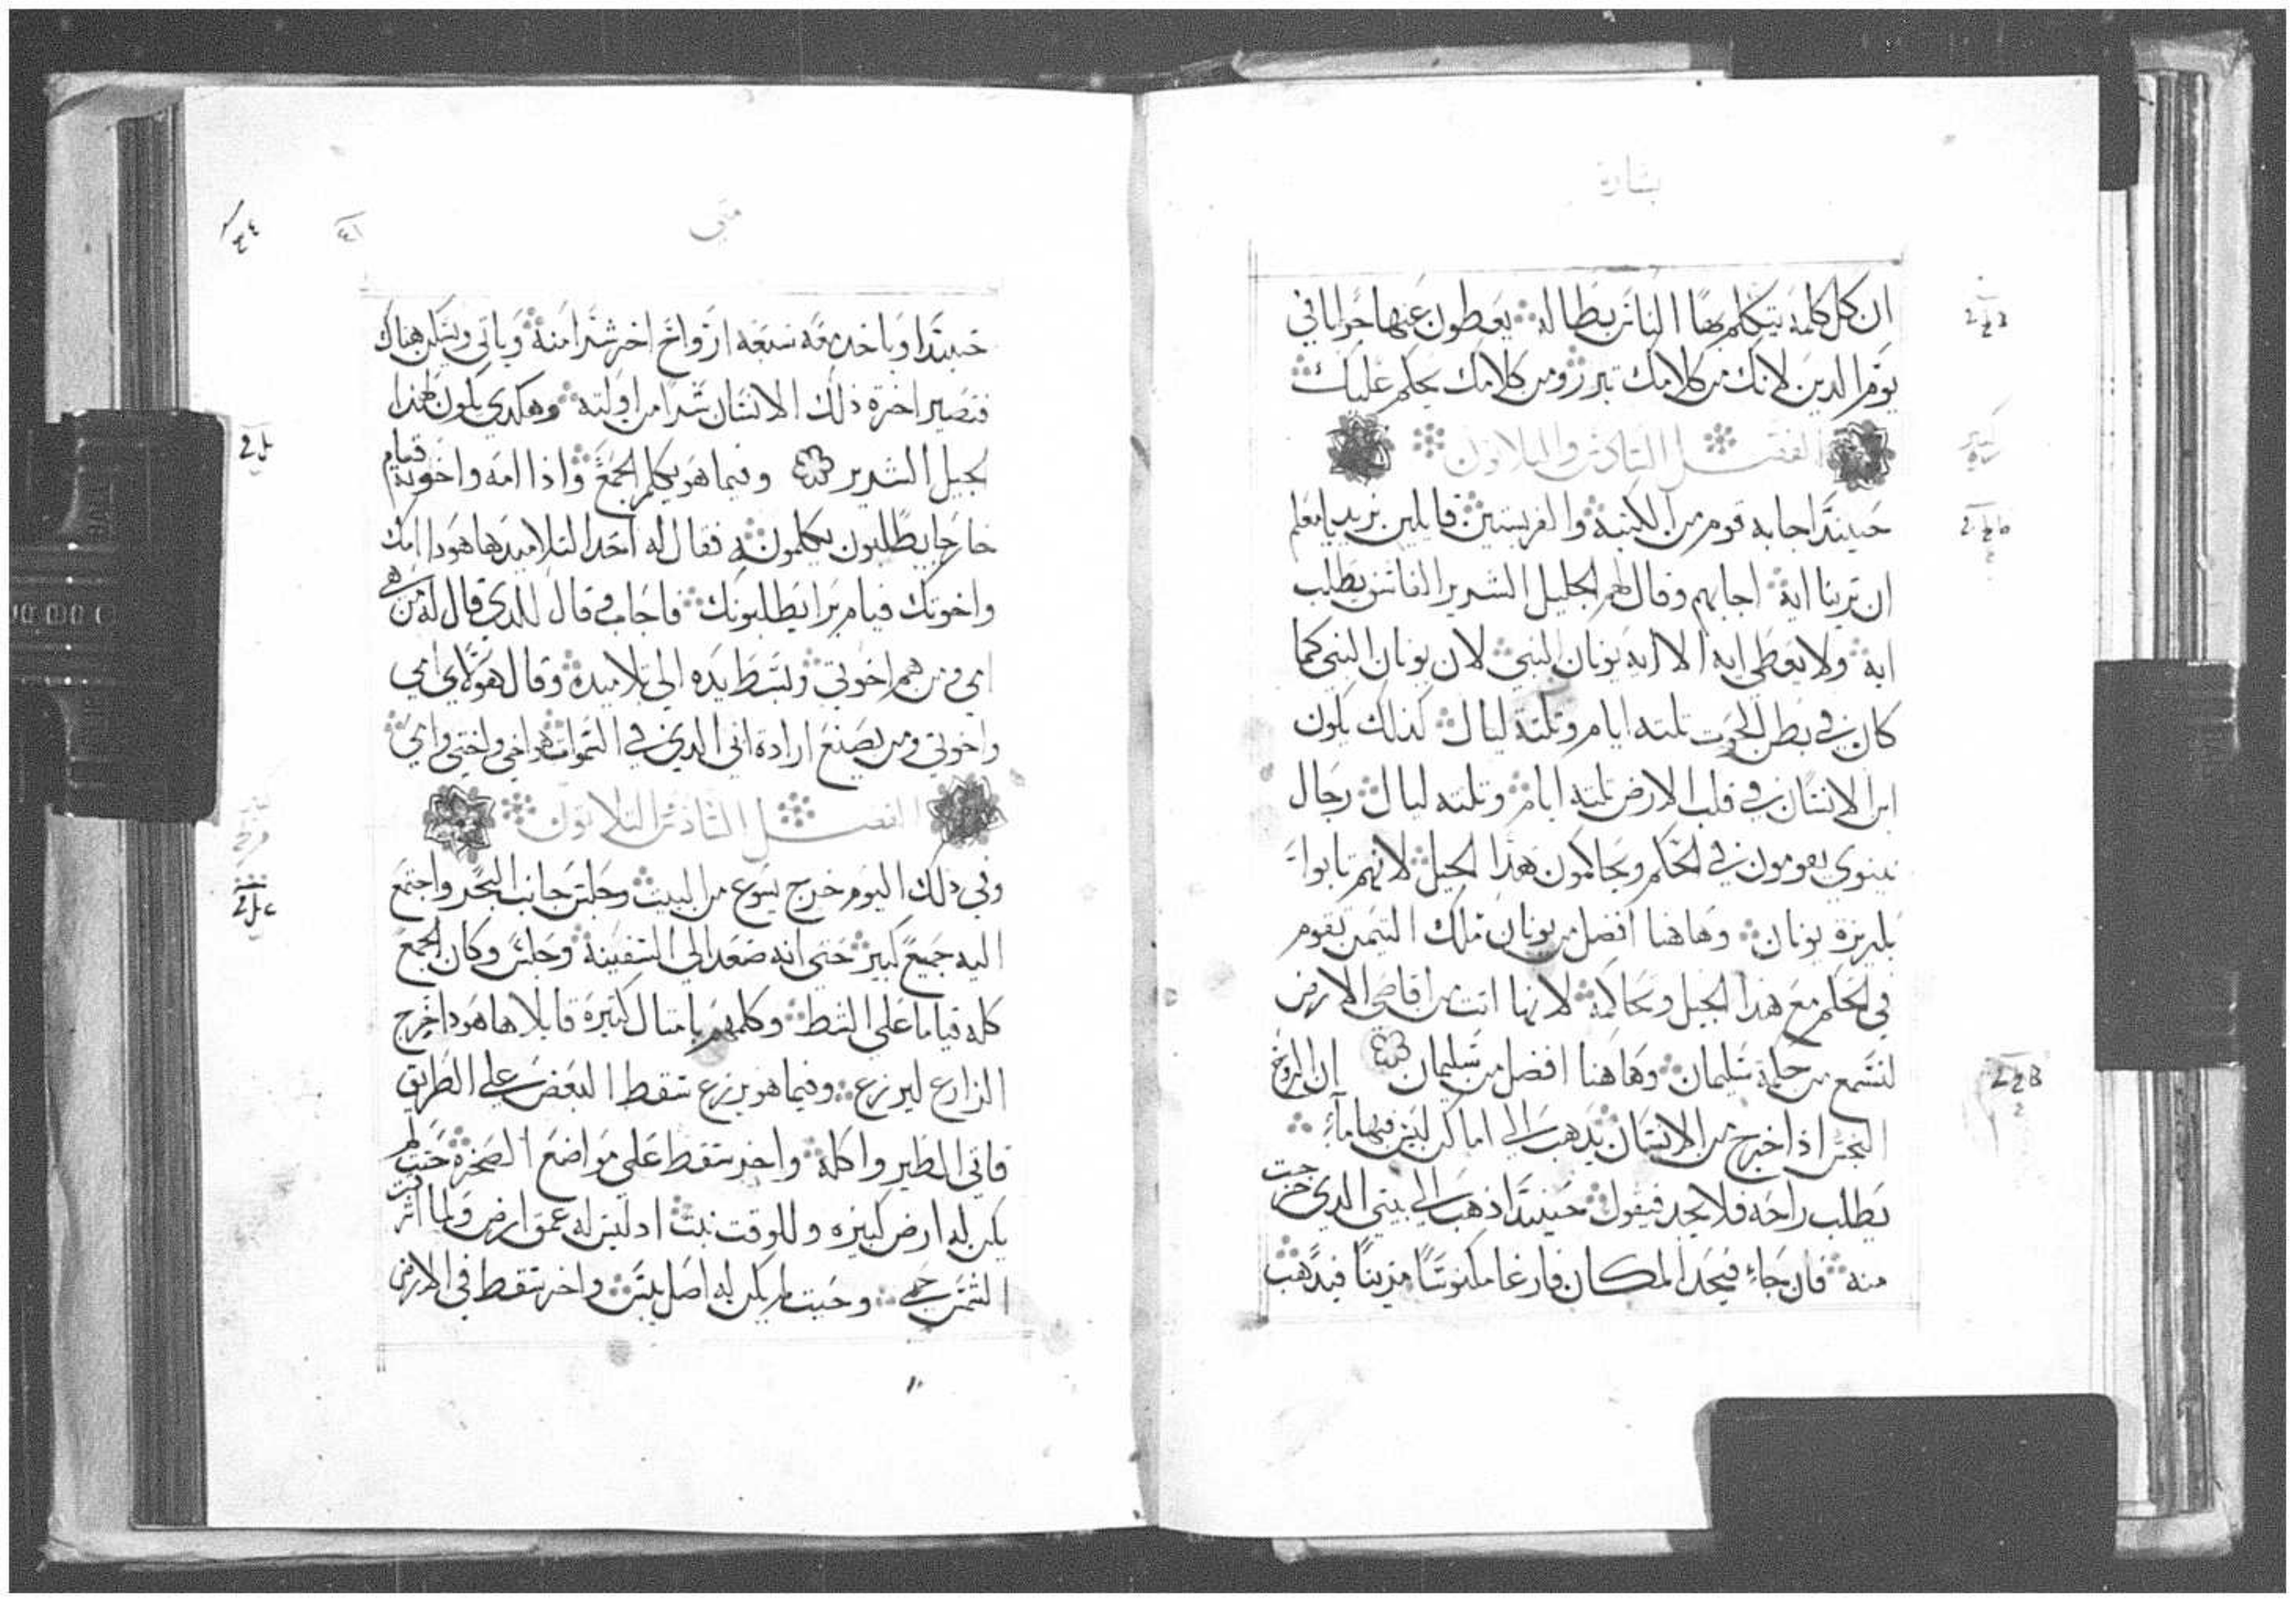 بشارة
ان كل كلمة يتكلم بها الناس بطاله يعطون عنها جوابا في
يوم الدين لانك من كلامك تبرر ومن كلامك يحكم عليك
الفصل السادس والثلاثون
حينيدا اجابه قوم من الكتبة والفريسيين قايلين نريد يا معلم
ان ترينا اية اجابهم وقال لهم الجليل الشرير الفاسق يطلب
اية ولا يعطى اية الا اية يونان النبي لان يونان النبي كما
كان في بطن الحوت تلته ايام وتلتة ليال كذلك يكون
ابن الانسان في قلب الارض تلته ايام وتلته ليال رجال
نينوي يقومون في الحكم ويحاكمون هذا الجيل لانهم تابوا
بكريزة يونان وهاهنا افضل من يونان ملكت التيمن تقوم
في الحكم مع هذا الجيل وتحاكمه لانها اتت من اقاصي الارض
لتسمع من حكمة سليمان وهاهنا افضل من سليمان ان الروح
النجس اذا خرج من الانسان يدهب الى اماكن ليس فيها ماء
يطلب راحه فلا يجد فيقول حينيدا اذهب الى بيتي الدي خرجت
منه فان جاء فيجد المكان فارغا مكنوسًا مزينًا فيدهب
متي
٤١
حينيدا وياخد معه سبعه ارواح اخر شرا منه وياتي ويسكن هناك
فتصير اخرة ذلك الانسان شرا من اولته وهكدي يكون لهدا
الجيل الشرير وفيما هو يكلم الجمع واذا امه واخوته قيام
خارجا يطلبون يكلمونه فقال له احد التلاميد ها هودا امك
واخوتك قيام برا يطلبونك فاجاب وقال للدي قال له من هي
امي ومن هم اخوتي وبسط يده الي تلاميده وقال هولاي امي
واخوتي ومن يصنع ارادة ابي الدي في السموات هو اخي واختي وامي
الفصل السادس الثلاثون
وفي ذلك اليوم خرج يسوع من البيت وجلس جانب البحر واجتمع
اليه جميع كبير حتي انه صعد الى السفينة وجلس وكان الجمع
كله قياما على الشط وكلمهم بامتال كتيرة قايلا ها هودا خرج
الزارع ليزرع وفيما هو يزرع سقط البعض على الطريق
فاتي الطير واكله واخر سقط علي مواضع الصخرة حيت لم
يكن له ارض كبيره وللوقت نبت اد ليس له عمق ارض ولما اشرقت
الشمس حمي وحيت لم يكن له اصل يبس واخر سقط في الارض